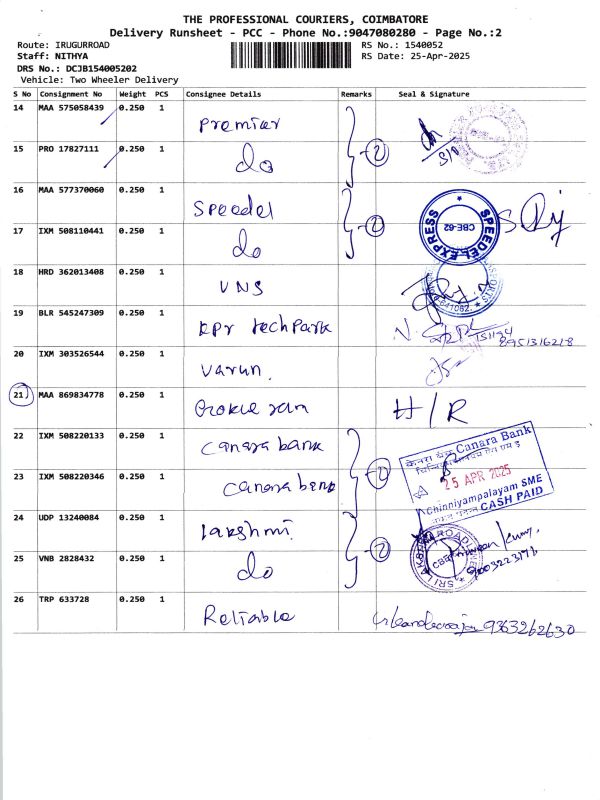 THE PROFESSIONAL COURIERS, COIMBATORE
Delivery Runsheet - PCC - Phone No.:9047080280 - Page No.:2
Route: IRUGURROAD
Staff: NITHYA
DRS No.: DCJB154005202
Vehicle: Two Wheeler Delivery
RS No.: 1540052
RS Date: 25-Apr-2025
S No Consignment No Weight PCS Consignee Details Remarks Seal & Signature
14 MAA 575058439 0.250 1 Premier
15 PRO 17827111 0.250 1 do 2
16 MAA 577370060 0.250 1 Speedel
SPEEDEL EXPRESS
CBE-62
17 IXM 508110441 0.250 1 do 2
18 HRD 362013408 0.250 1 VNS
19 BLR 545247309 0.250 1 kpr techpark
8951316218
20 IXM 303526544 0.250 1 Varun.
21 MAA 869834778 0.250 1 H/R
22 IXM 508220133 0.250 1 Canara bank
23 IXM 508220346 0.250 1 Canara bank 2
केनरा बैंक Canara Bank
25 APR 2025
Chinniyampalayam SME
CASH PAID
24 UDP 13240084 0.250 1 Lakshmi
25 VNB 2828432 0.250 1 do 2
26 TRP 633728 0.250 1 Reliable 9363262630